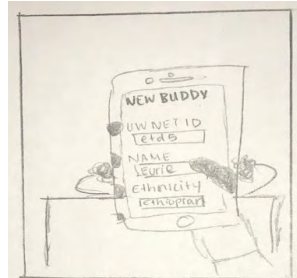 NEW BUDDY
UW NET ID
etd5
NAME
Eurie
Ethnicity
ethiopian